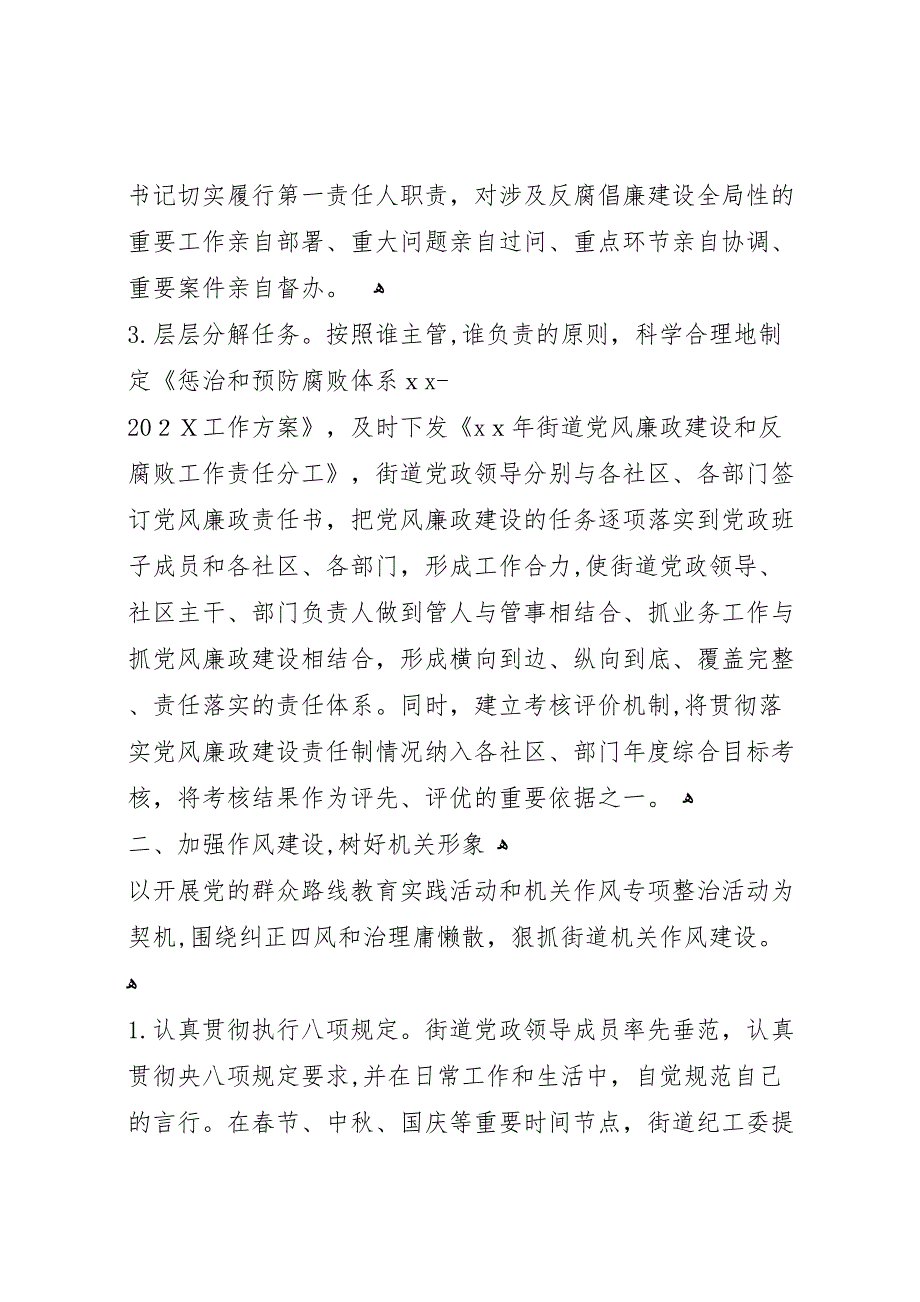 书记切实履行第一责任人职责，对涉及反腐倡廉建设全局性的
重要工作亲自部署、重大问题亲自过问、重点环节亲自协调、
重要案件亲自督办。 ﻫ
3.层层分解任务。按照谁主管,谁负责的原则，科学合理地制
定《惩治和预防腐败体系ｘx-
20２Ｘ工作方案》，及时下发《xｘ年街道党风廉政建设和反
腐败工作责任分工》，街道党政领导分别与各社区、各部门签
订党风廉政责任书，把党风廉政建设的任务逐项落实到党政班
子成员和各社区、各部门，形成工作合力,使街道党政领导、
社区主干、部门负责人做到管人与管事相结合、抓业务工作与
抓党风廉政建设相结合，形成横向到边、纵向到底、覆盖完整
、责任落实的责任体系。同时，建立考核评价机制,将贯彻落
实党风廉政建设责任制情况纳入各社区、部门年度综合目标考
核，将考核结果作为评先、评优的重要依据之一。 ﻫ
二、加强作风建设,树好机关形象 ﻫ
以开展党的群众路线教育实践活动和机关作风专项整治活动为
契机,围绕纠正四风和治理庸懒散，狠抓街道机关作风建设。
ﻫ
1.认真贯彻执行八项规定。街道党政领导成员率先垂范，认真
贯彻央八项规定要求,并在日常工作和生活中，自觉规范自己
的言行。在春节、中秋、国庆等重要时间节点，街道纪工委提